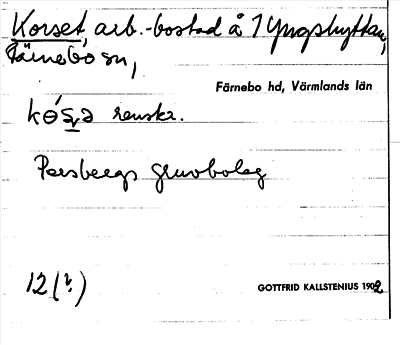 Korset, arb.-bostad å 1 Yngshyttan,
Färnebo sn,
Färnebo hd, Värmlands län
Persbergs gruvbolag
12 (?)
GOTTFRID KALLSTENIUS 1902